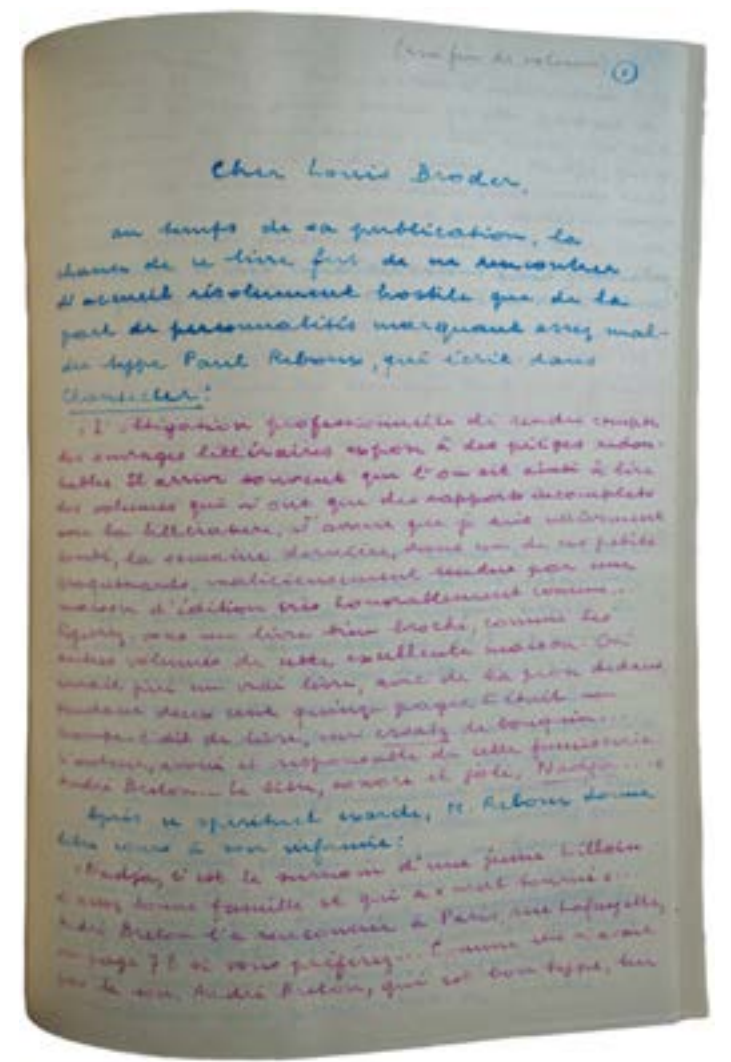 (en fin de volume) 1
Cher Louis Broder,
au temps de sa publication, la
chance de ce livre fut de ne rencontrer
d'accueil résolument hostile que de la
part de personnalités marquant assez mal-
du type Paul Reboux, qui écrit dans
Chantecler:
"L'obligation professionnelle de rendre compte
des ouvrages littéraires expose à des pièges redou-
tables. Il arrive souvent que l'on ait ainsi à lire
des volumes qui n'ont que des rapports incomplets
avec la littérature. J'avoue que je suis
tombé, la semaine dernière, dans un de ces petits
traquenards, malicieusement tendu par une
maison d'édition très honorablement connue...
Figurez-vous un livre bien broché, comme les
autres volumes de cette excellente maison. On
aurait juré un vrai livre, avec de la prose dedans,
pendant deux cent quinze pages. C'était un
de livre, un ersatz de bouquin...
L'auteur, avoué et responsable de cette fumisterie
André Breton. Le titre, sonore et joli, Nadja...."
Après ce spirituel exorde, M. Reboux donne
libre cours à son infamie:
"Nadja, c'est le surnom d'une jeune Lilloise
d'assez bonne famille et qui a "mal tourné"...
André Breton l'a rencontrée à Paris, rue Lafayette,
ou page 78 si vous préférez... Comme elle n'avait
pas le sou, André Breton, qui est bon type, lui